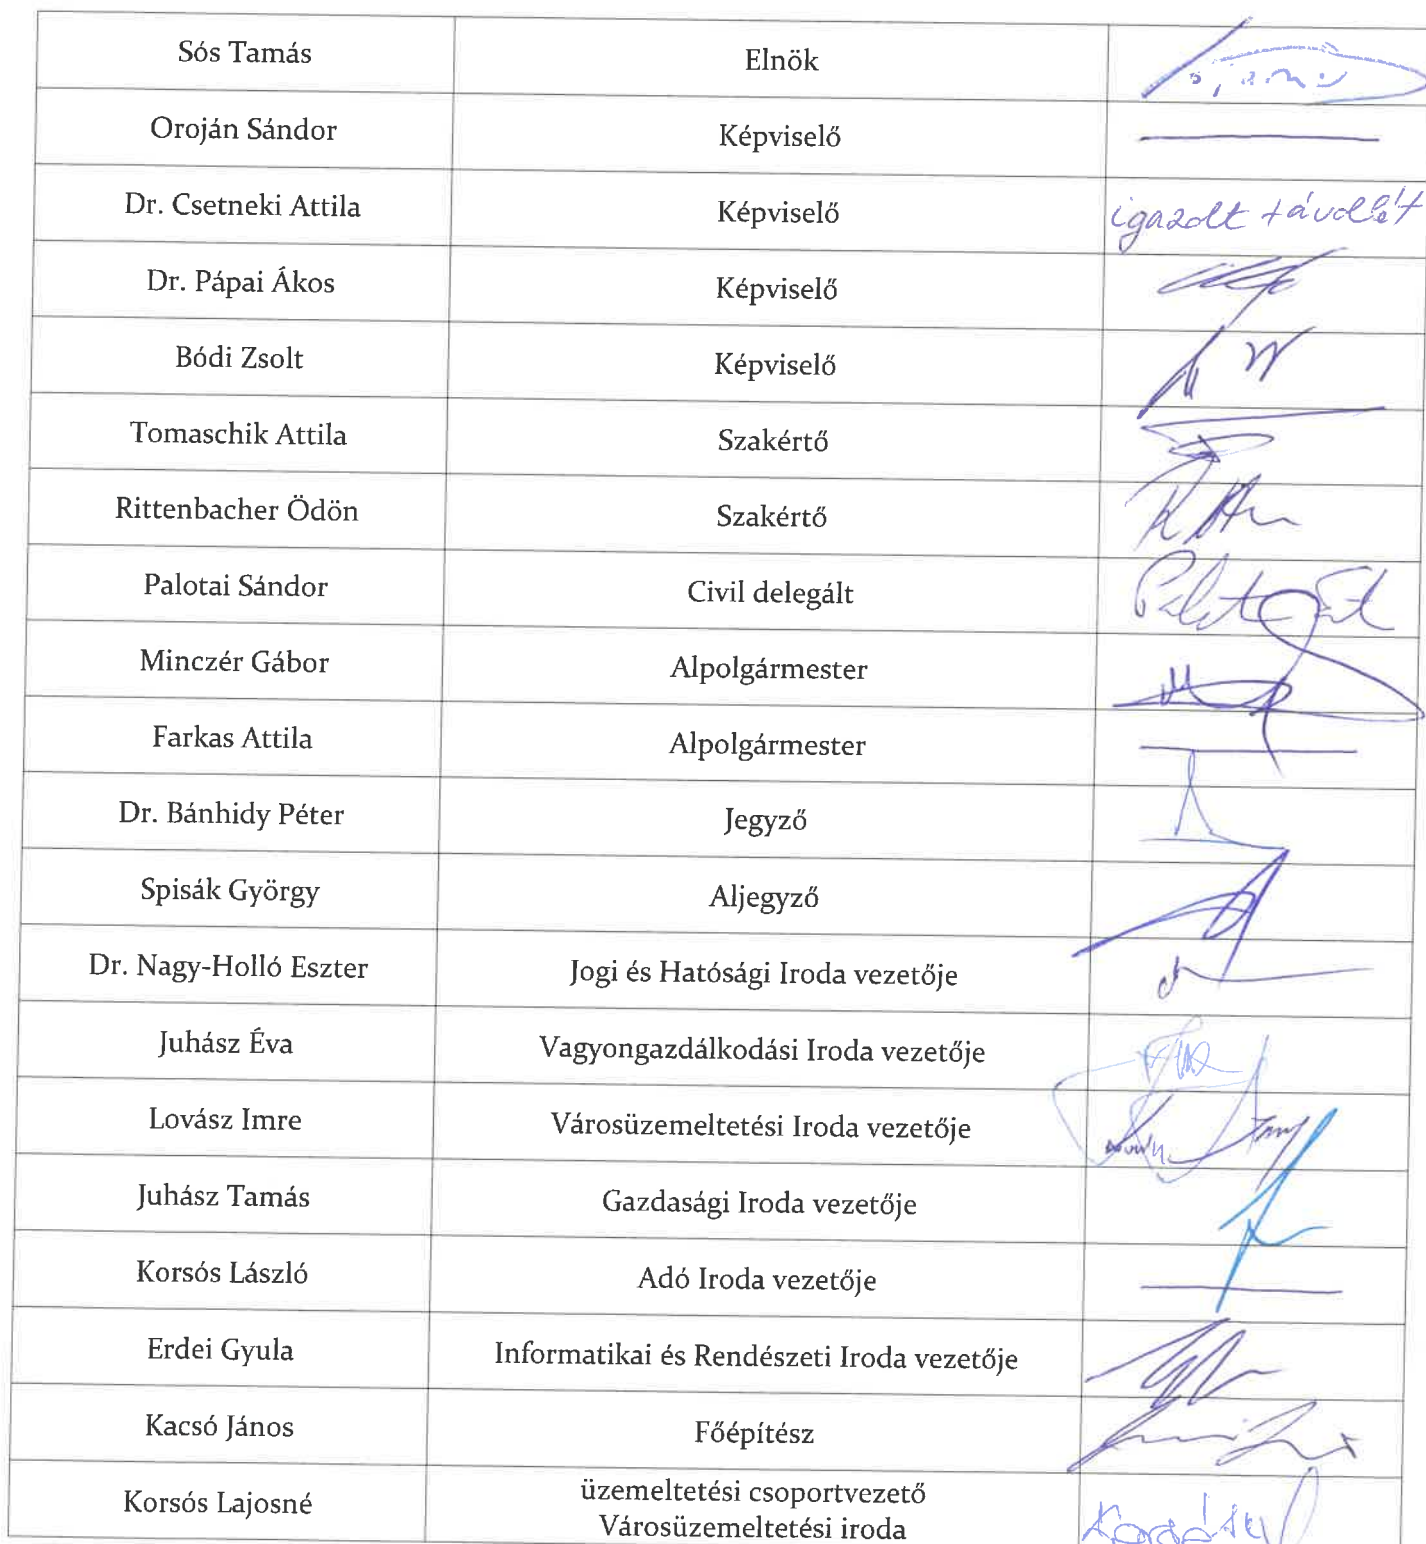 Sós Tamás Elnök
Oroján Sándor Képviselő
Dr. Csetneki Attila Képviselő igazolt távollét
Dr. Pápai Ákos Képviselő
Bódi Zsolt Képviselő
Tomaschik Attila Szakértő
Rittenbacher Ödön Szakértő
Palotai Sándor Civil delegált
Minczér Gábor Alpolgármester
Farkas Attila Alpolgármester
Dr. Bánhidy Péter Jegyző
Spisák György Aljegyző
Dr. Nagy-Holló Eszter Jogi és Hatósági Iroda vezetője
Juhász Éva Vagyongazdálkodási Iroda vezetője
Lovász Imre Városüzemeltetési Iroda vezetője
Juhász Tamás Gazdasági Iroda vezetője
Korsós László Adó Iroda vezetője
Erdei Gyula Informatikai és Rendészeti Iroda vezetője
Kacsó János Főépítész
Korsós Lajosné üzemeltetési csoportvezető
Városüzemeltetési iroda